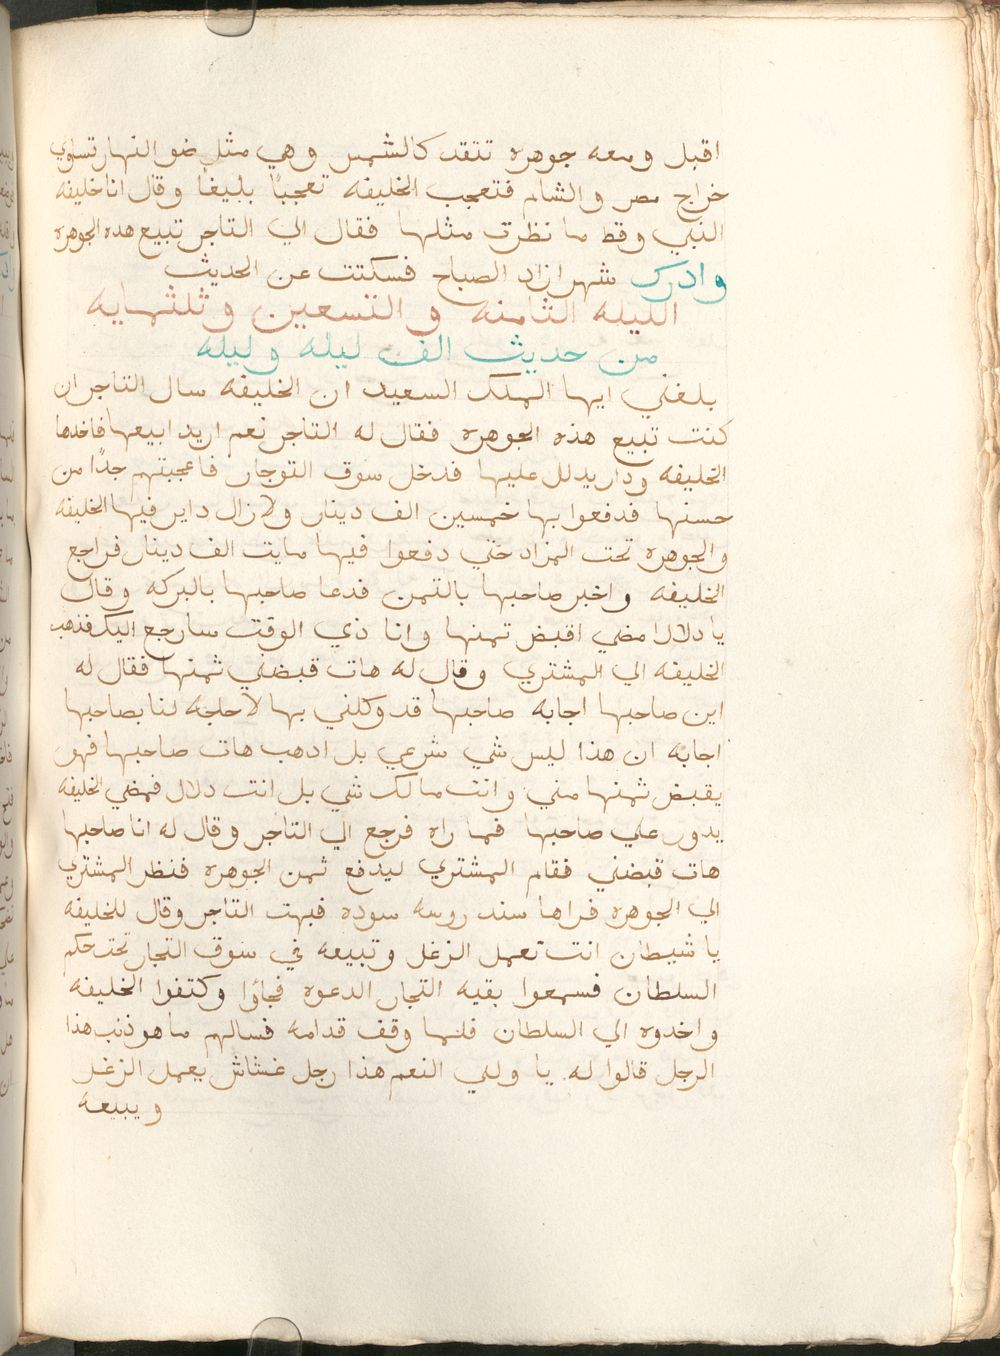 اقبل ومعه جوهره تتقد كالشمس وهي مثل ضو النهار تساوي
خراج مصر والشام فتعجب الخليفه تعجبًا بليغًا وقال انا خليفه
النبي وقط ما نظرت مثلها فقال الي التاجر تبيع هده الجوهره
وادرك شهرازاد الصباح فسكتت عن الحديث
الليله الثامنه والتسعين وثلثمايه
من حديث الف ليله وليله
بلغني ايها الملك السعيد ان الخليفه سال التاجر ان
كنت تبيع هذه الجوهره فقال له التاجر نعم اريد ابيعها فاخدها
الخليفه ودار يدلل عليها فدخل سوق التوجار فاعجبتهم جدًا من
حسنها فدفعوا بها خمسين الف دينار ولازال داير فيها الخليفه
والجوهره تحت المزاد حتي دفعوا فيها مايت الف دينار فراجع
الخليفه واخبر صاحبها بالتمن فدعا صاحبها بالبركه وقال
يا دلال امضي اقبض تمنها وانا ذي الوقت سارجع اليك فذهب
الخليفه الي المشتري وقال له هات قبضني ثمنها فقال له
اين صاحبها اجابه صاحبها قد وكلني بها لاحاجه لنا بصاحبها
اجابه ان هذا ليس شي شرعي بل ادهب هات صاحبها فهو
يقبض ثمنها مني وانت مالك شي بل انت دلال فمضي الخليفه
يدور علي صاحبها فما راه فرجع الي التاجر وقال له انا صاحبها
هات قبضني فقام المشتري ليدفع ثمن الجوهره فنظر المشتري
الي الجوهره فراها سند روسه سوده فبهت التاجر وقال للخليفه
يا شيطان انت تعمل الزغل وتبيعه في سوق التجار تحت حكم
السلطان فسمعوا بقيه التجار الدعوه فجاؤا وكتفوا الخليفه
واخدوه الي السلطان فلما وقف قدامه فسالهم ما هو ذنب هذا
الرجل قالوا له يا ولي النعم هذا رجل غشاش يعمل الزغل
ويبيعه